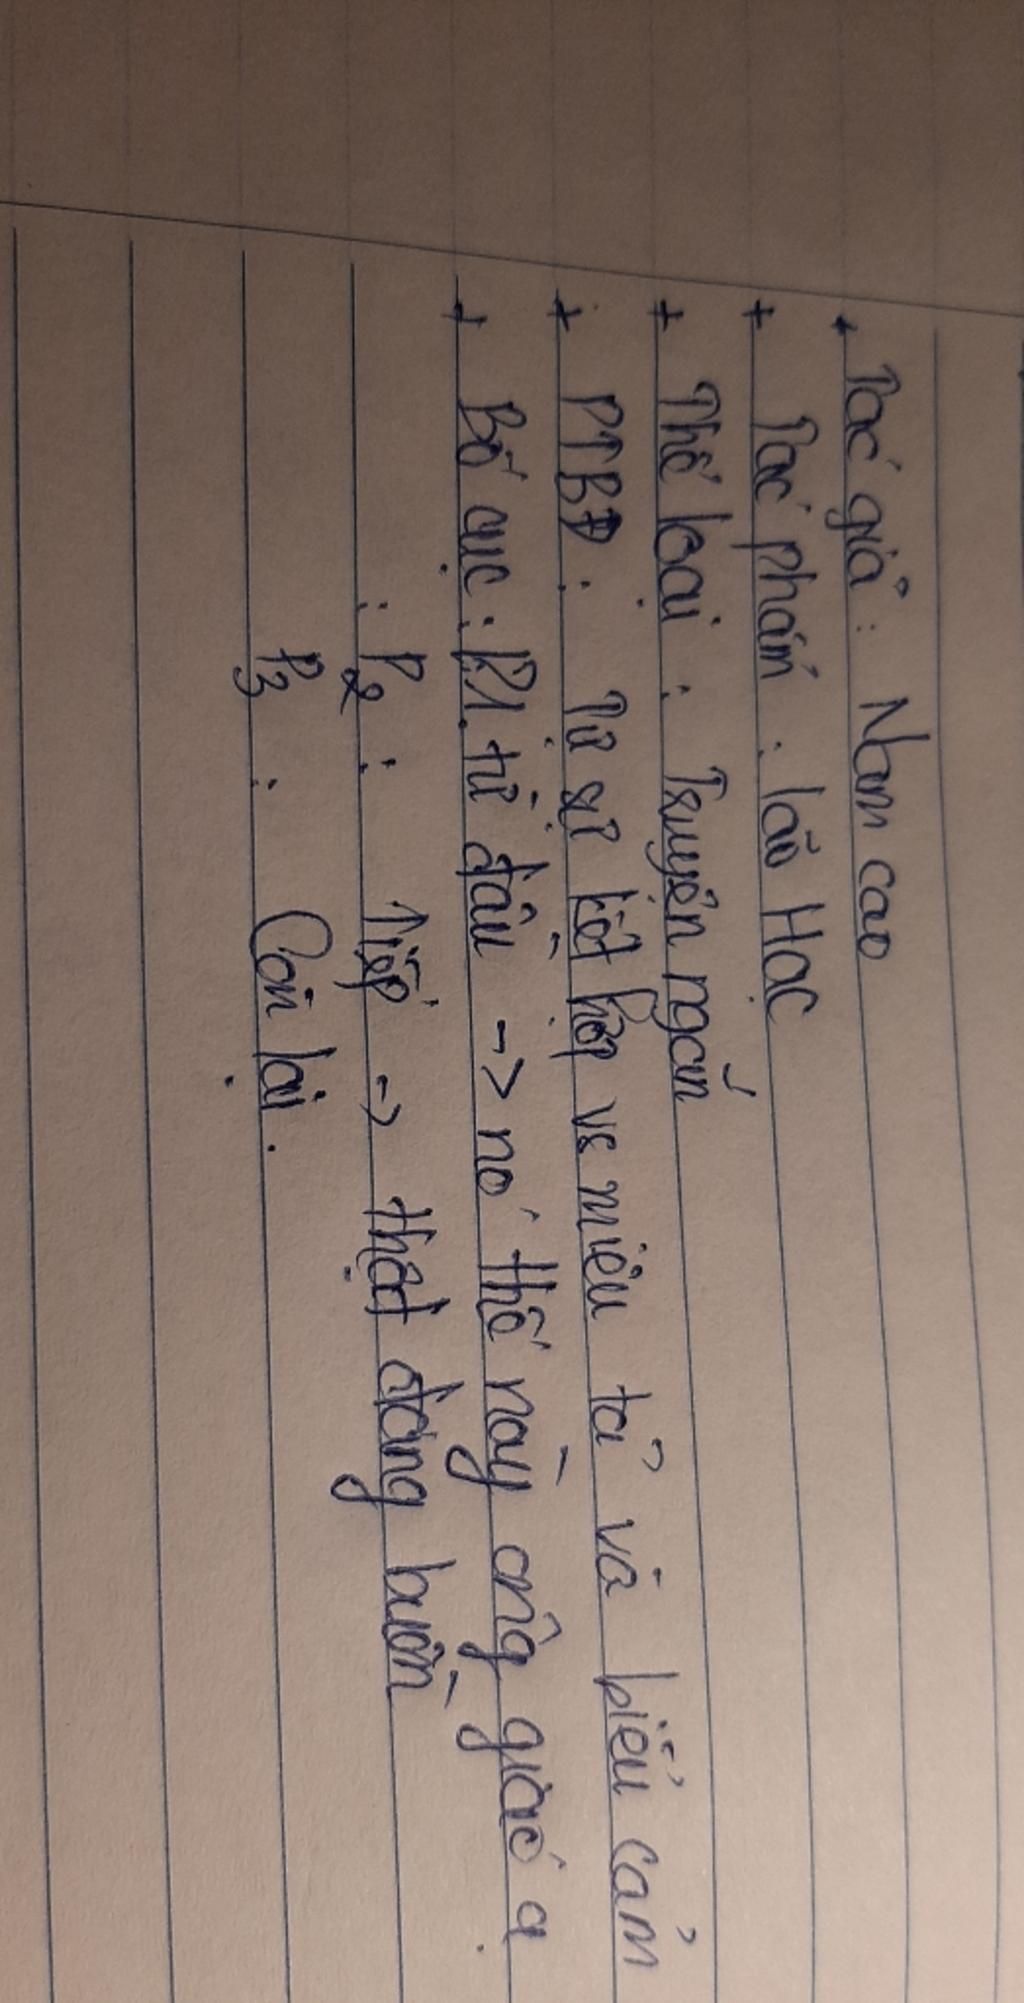 + Tác giả : Nam cao
+ Tác phẩm : lão Hạc
+ Thể loại : Truyện ngắn
+ PTBĐ : Tự sự kết hợp vs miêu tả và biểu cảm
+ Bố cục : P1. từ đầu -> nó thế này ông giáo ạ
: P2 : Tiếp -> thật đáng buồn
P3 : Còn lại.